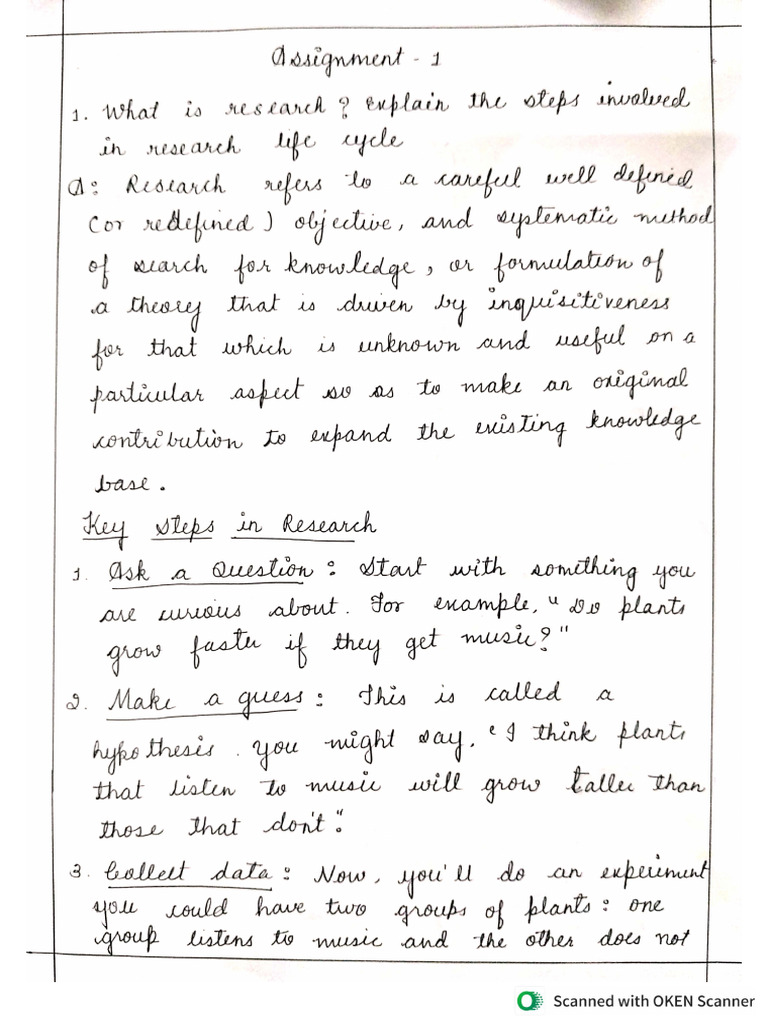 Assignment - 1
1. What is research? Explain the steps involved
in research life cycle
A: Research refers to a careful well defined
(or redefined) objective, and systematic method
of search for knowledge, or formulation of
a theory that is driven by inquisitiveness
for that which is unknown and useful on a
particular aspect so as to make an original
contribution to expand the existing knowledge
base.
Key steps in Research
1. Ask a Question: Start with something you
are curious about. For example, "Do plants
grow faster if they get music?"
2. Make a guess: This is called a
hypothesis. You might say, "I think plants
that listen to music will grow taller than
those that don't".
3. Collect data: Now, you'll do an experiment
you could have two groups of plants: one
group listens to music and the other does not
Scanned with OKEN Scanner